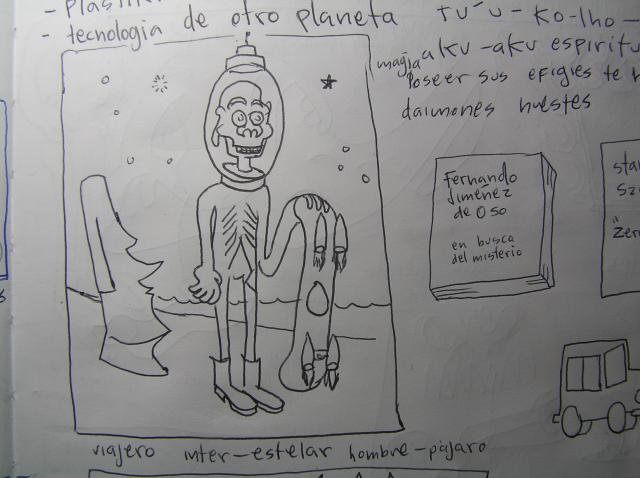 - tecnología de otro planeta
tu'u-ko-lho-
magia aku-aku
Poseer sus efigies te
daimones huestes
Fernando
Jiménez
de Oso
en busca
del misterio
viajero inter-estelar hombre-pájaro